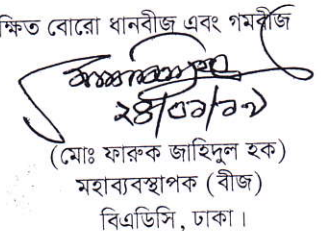 ক্ষিত বোরো ধানবীজ এবং গমবীজ
(মোঃ ফারুক জাহিদুল হক)
মহাব্যবস্থাপক (বীজ)
বিএডিসি, ঢাকা।